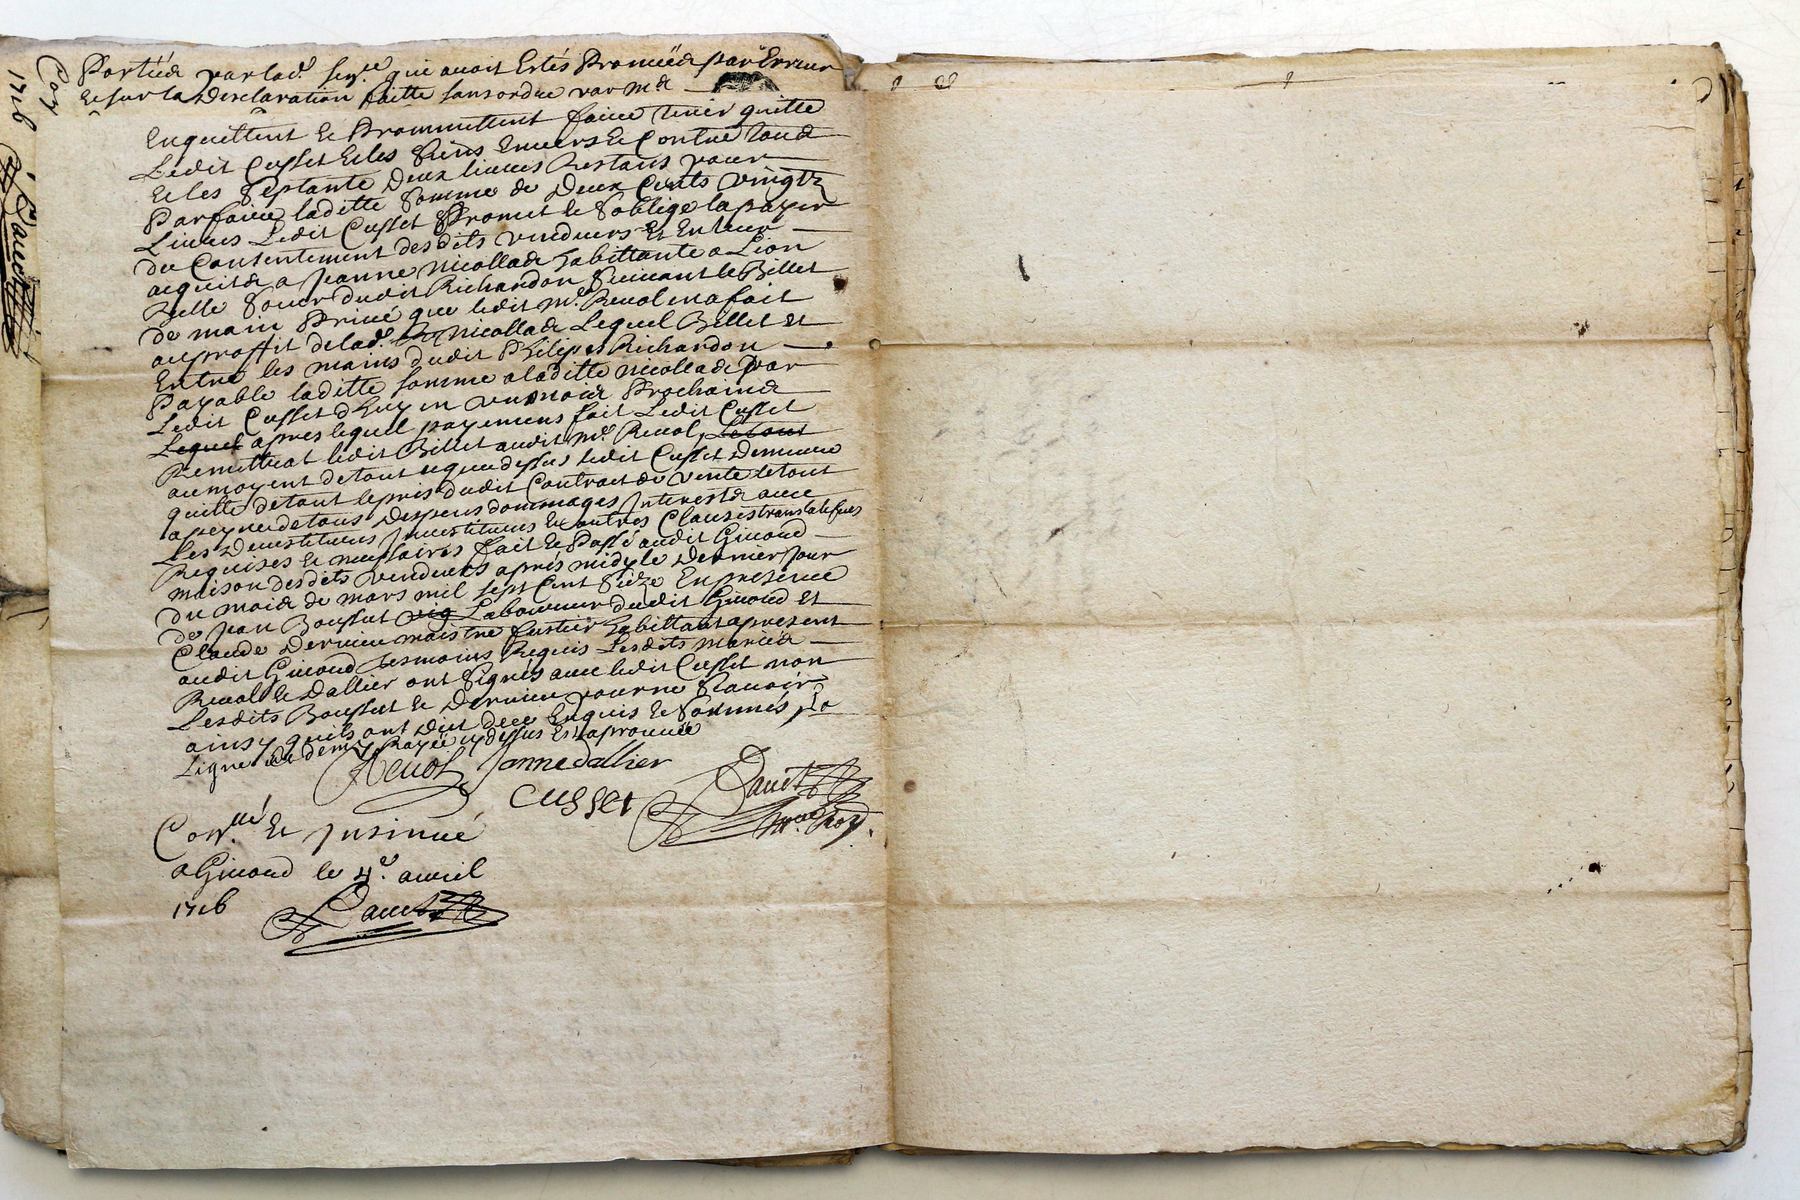 Portéés par lad.e qui avoit Estés Promiés par Erreur
Et sur la Desclaration faitte sans ordre par Me
Enquittent Et Prommettent faire tenir quitte
Ledit Cusset Et les siens Envers Et Contre tous
Et les septante Deux livres Restans pour
Parfaire ladette somme de Deux Cents vingtz
Livres Ledit Cusset Promet Et s'oblige la payer
du Consentement desdits vendeurs Et En leur
acquit a Jeanne Nicollade habittante a Lion
Belle soeur dudit Richardon suivant le Billet
de main Privé que ledit Me Revol en a fait
au proffit de lad.e Nicollade Lequel Billet est
Entre les mains dudit Philipes Richardon
Payable ladette somme a ladette Nicollade par
Ledit Cusset d'huy en un mois Prochains
Lequel apres lequel payement fait Ledit Cusset
Remettrat ledit Billet audit Me Revol, Le tout
au moyent de tout ce que dessus ledit Cusset Demeure
quitte de tout le pris dudit Contract de vente le tout
a peyne de tous Despens dommages Interests avec
Les Devestitures Investitures Et autres Clauses translatifves
Requises Et necessaires fait Et Passé audit Givord
maison desdits vendeurs aprés midy le Dernier Jour
du mois de mars mil sept Cent sieize En presence
de Jean Bousset vig Laboureur dudit Givord Et
Claude Dernieu maistre fustier habittant a present
audit Givord tesmoins Requis Lesdits mariés
Revol Et Dallier ont signés avec ledit Cusset non
Lesdits Bousset Et Dernieu pour ne scavoir
ainsy quils ont dict de ce Enquis Et sommés, La
Ligne Et demy Rayée cy dessus Est aprouvée
Revol Janne dallier
cusset
Dauit
Nre Roy.
Con.llé Et Insinué
a Givord le 4.e avril
1716
Dauit
Con
1716
Dauit